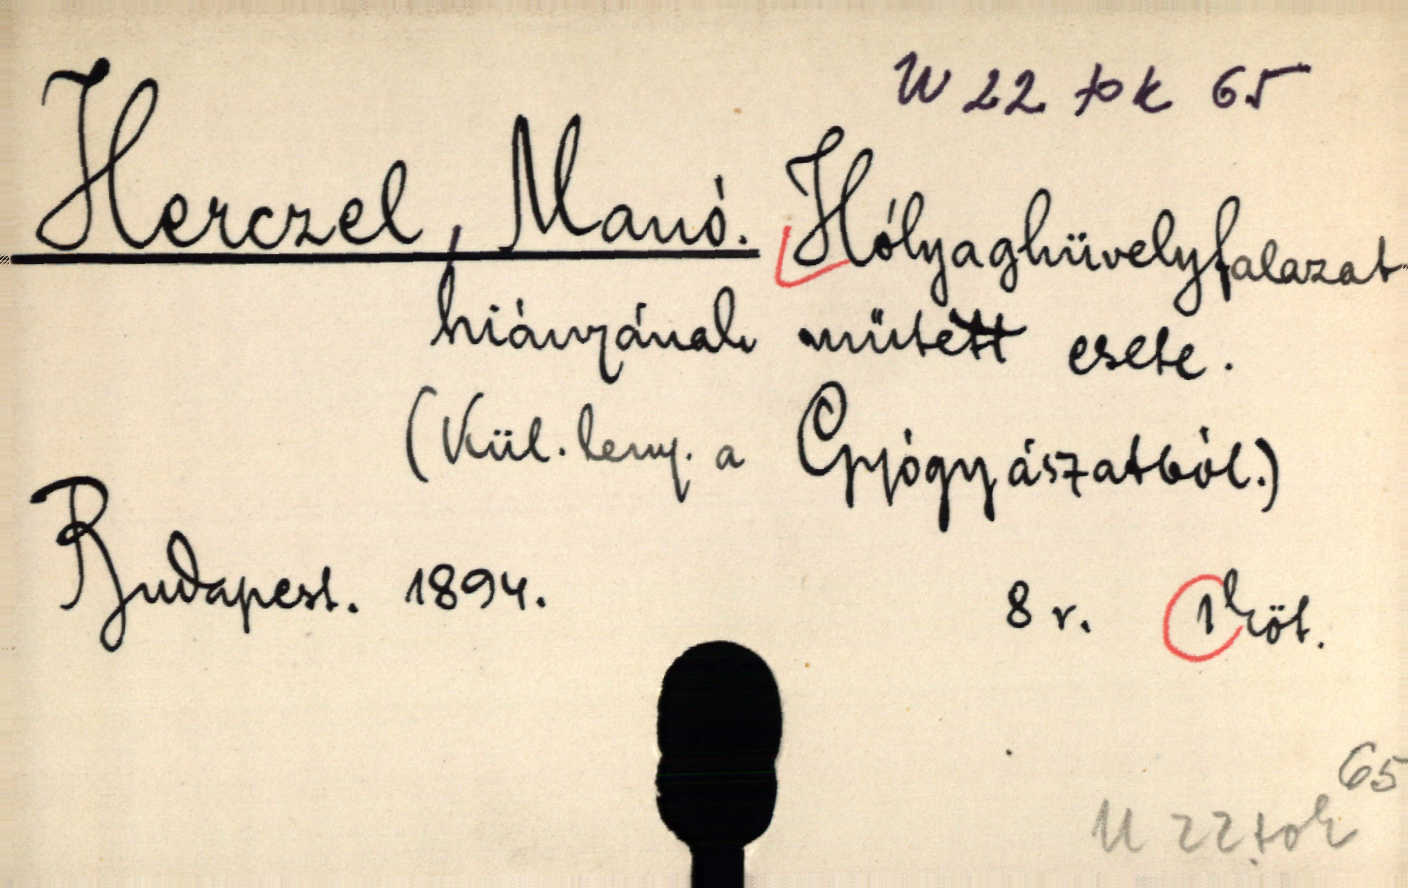 U 22 tok 65
Herczel, Manó. Hólyaghüvelyfalazat
hiányának mütett esete.
(Kül. leny. a Gyógyászatból.)
Budapest. 1894. 8 r. 1 köt.
65
U 22 tok